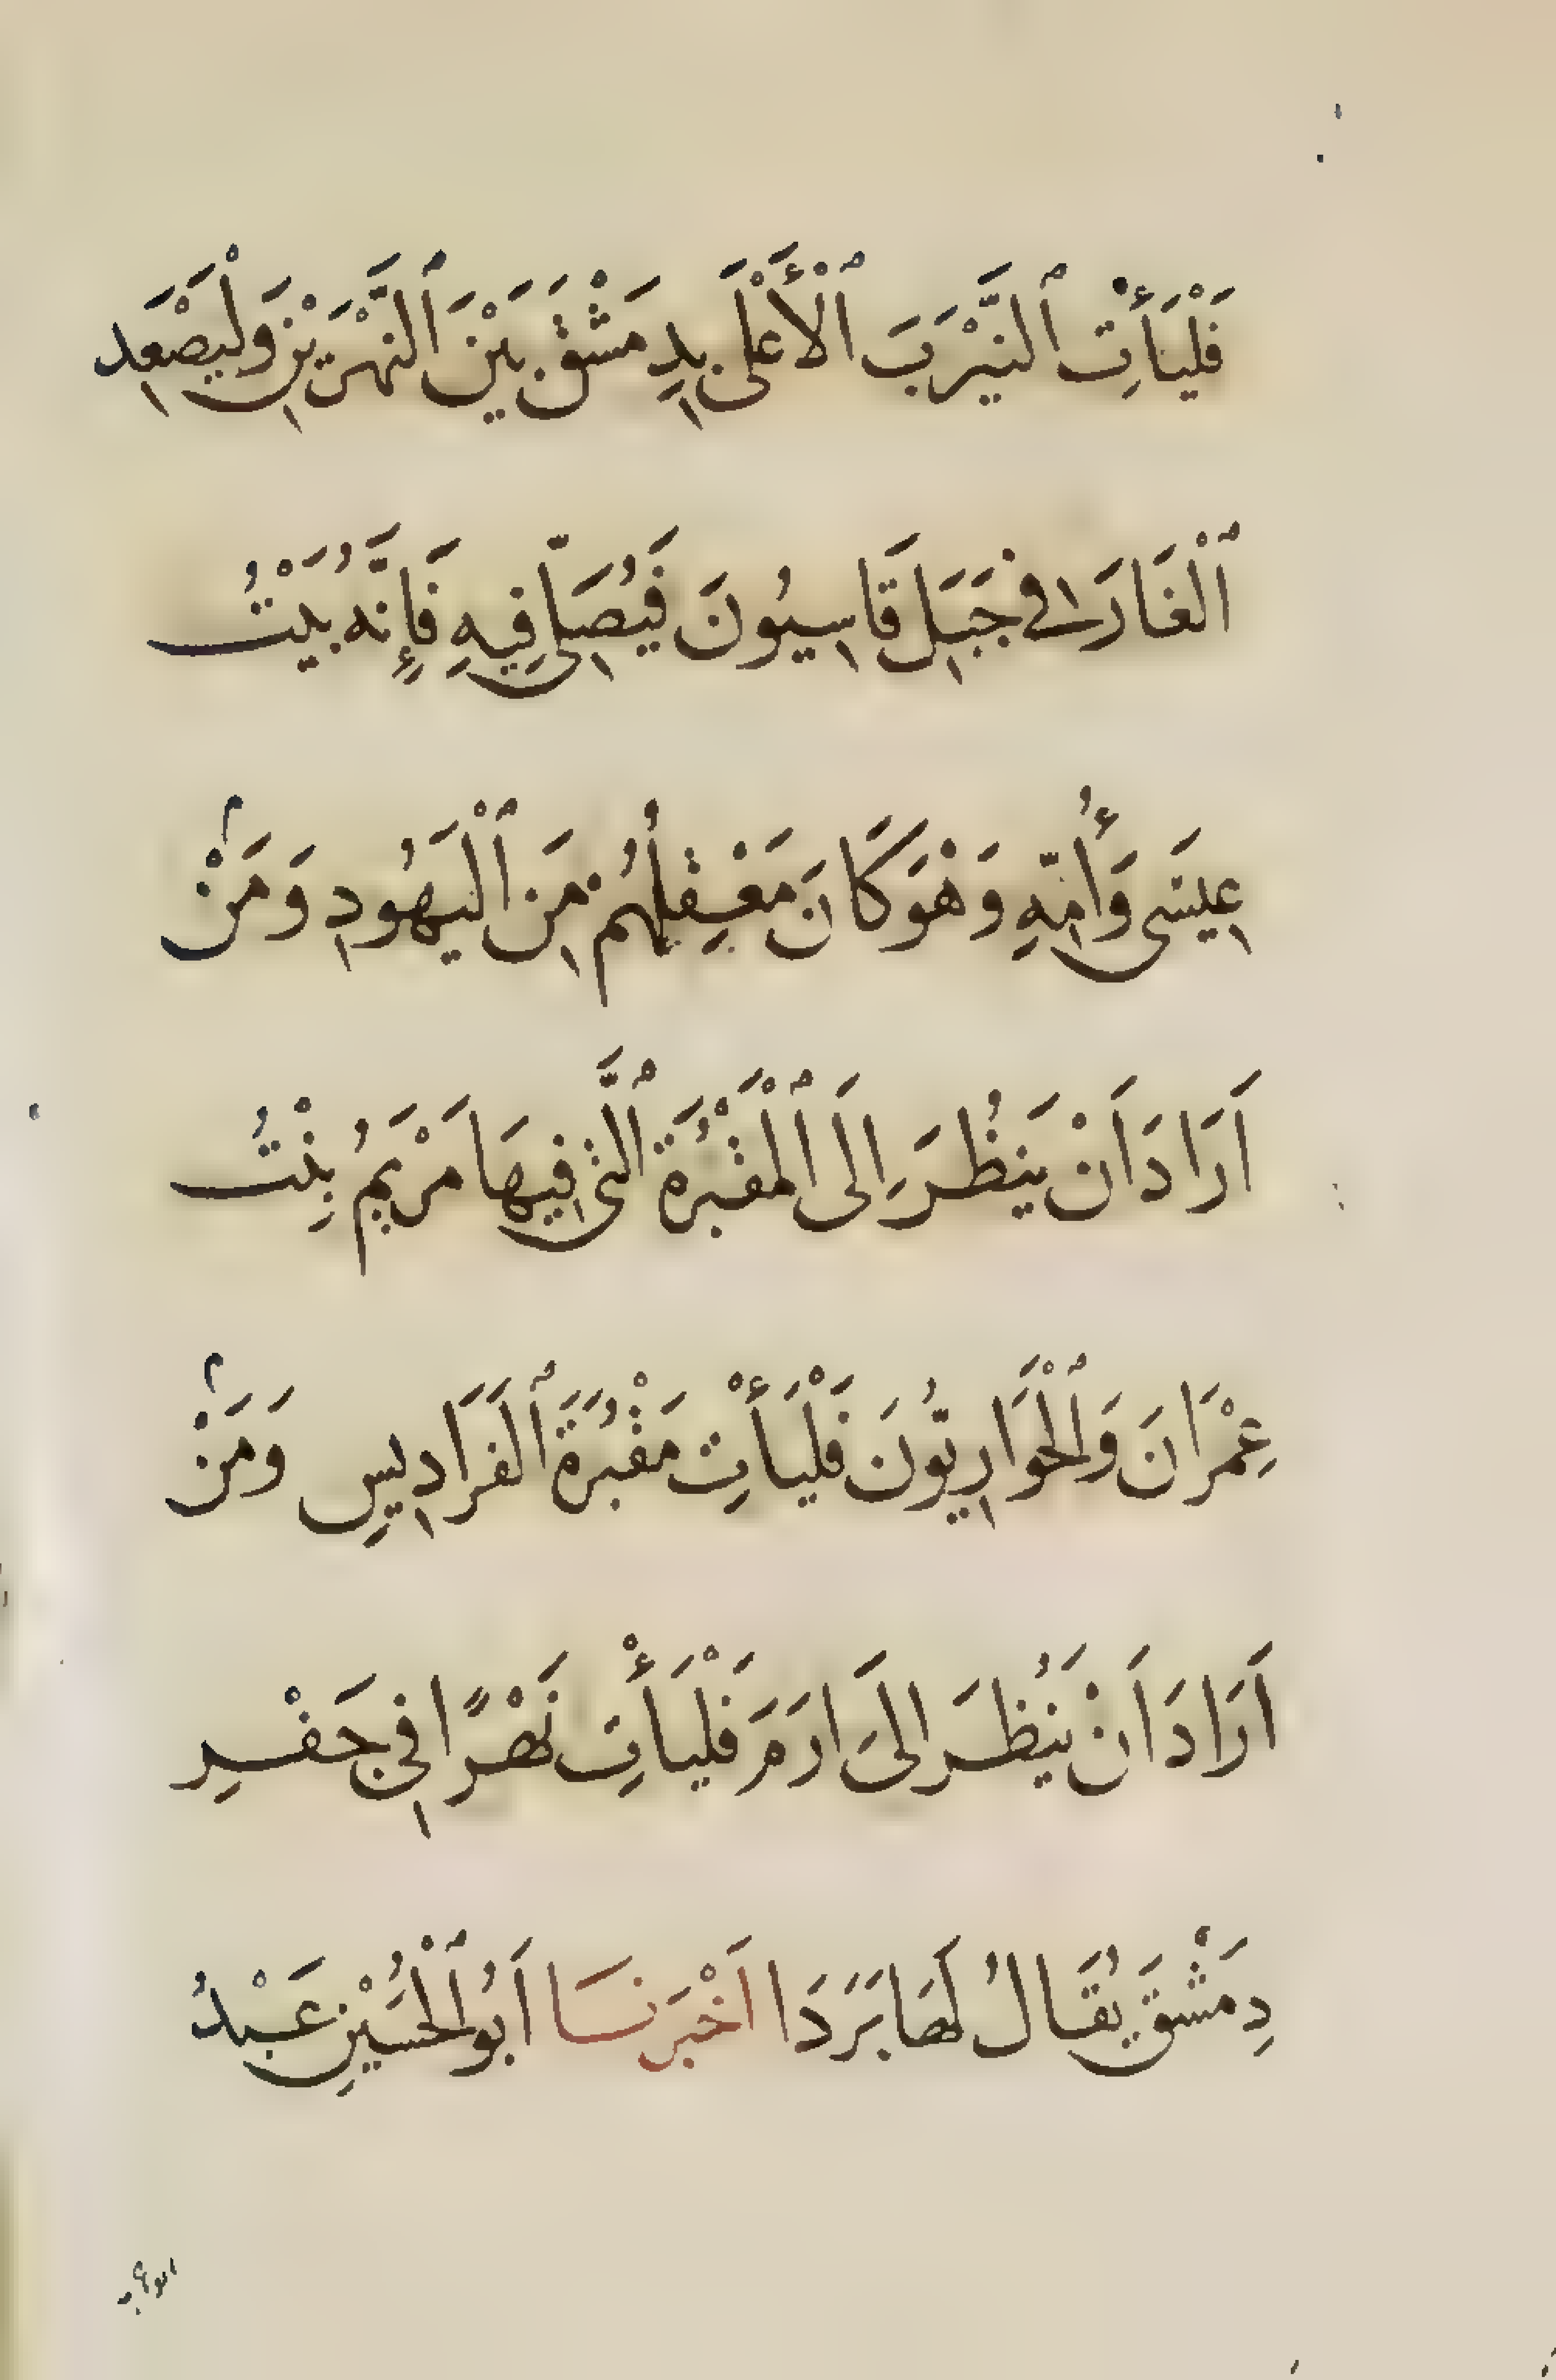 فَلْيَأْتِ ٱلنَّيْرَبَ ٱلْأَعْلَى بِدِمَشْقَ بَيْنَ ٱلنَّهَرَيْنِ وَلْيَصْعَدِ
ٱلْغَارَ فِي جَبَلِ قَاسِيُونَ فَيُصَلِّي فِيهِ فَإِنَّهُ بَيْتُ
عِيسَى وَأُمِّهِ وَهْوَ كَانَ مَعْقِلُهُمْ مِنَ ٱلْيَهُودِ وَمَنْ
اَرَادَ اَنْ يَنْظُرَ اِلَى ٱلْمَقْبُرَةِ ٱلَّتِي فِيهَا مَرْيَمُ بِنْتُ
عِمْرَانَ وَٱلْحَوَارِيُّونَ فَلْيَأْتِ مَقْبُرَةَ ٱلْفَرَادِيسِ وَمَنْ
اَرَادَ اَنْ يَنْظُرَ اِلَى اِرَمَ فَلْيَأْتِ نَهْرًا فِي حَفْرِ
دِمَشْقَ يُقَالُ لَهَا بَرَدَا اَخْبَرَنَا اَبُو ٱلْحُسَيْنِ عَبْدُ